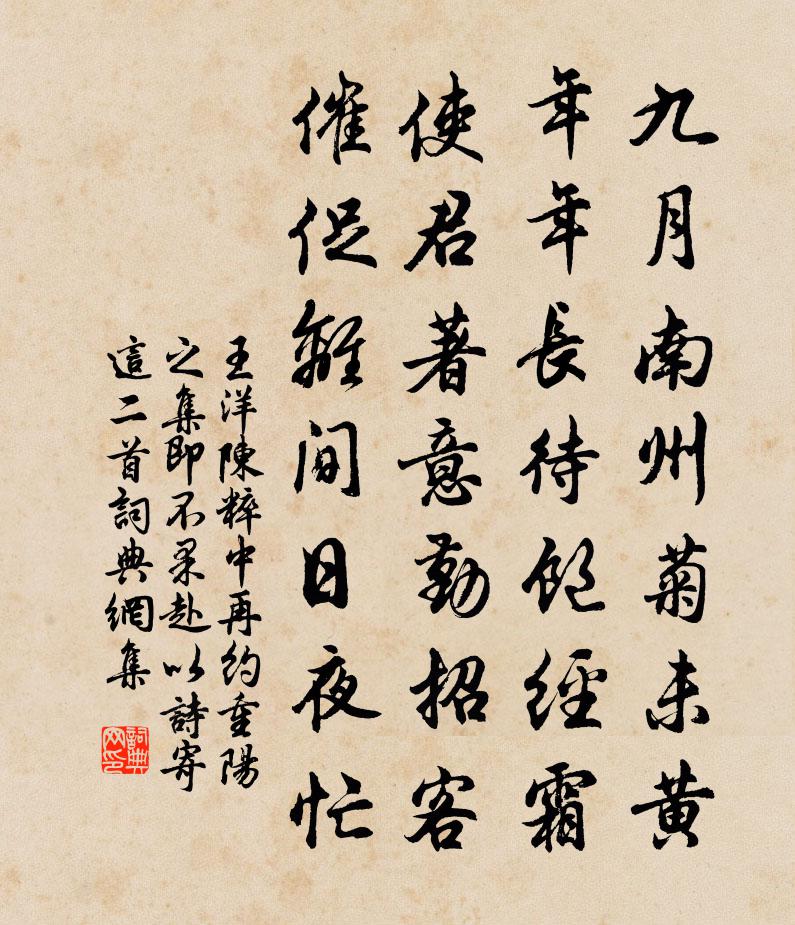 九月南州菊未黃
年年長待飽經霜
使君著意勤招客
催促離間日夜忙
王洋陳粹中再約重陽
之集即不果赴以詩寄
這二首詞典網集
詞典
网印